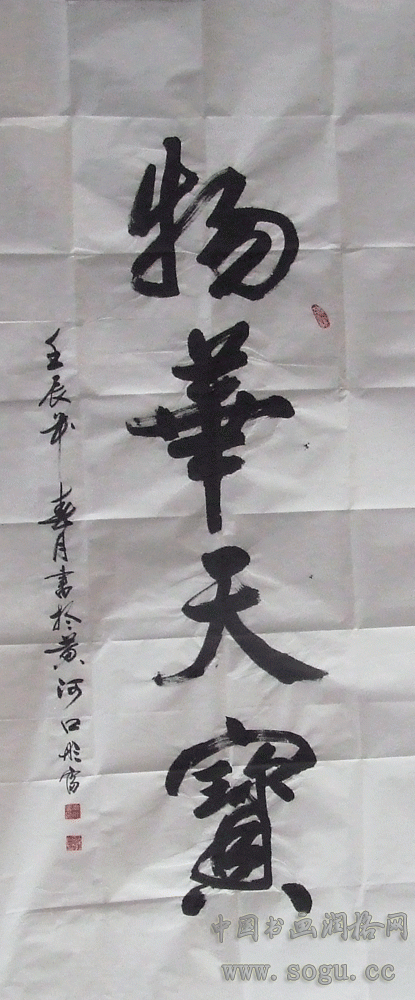 物華天寶
壬辰年春月書於黃河口
中国书画润格网
www.sogu.cc